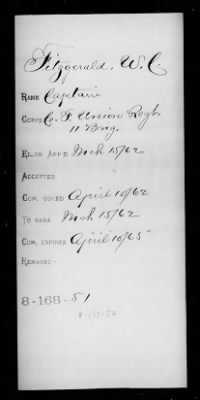 Fitzgerald, W. C.
RANK Captain
CORPS Co. F Union Regt.
11 Brig.
EL. OR APP'D Mch 15/62
ACCEPTED "
COM. ISSUED April 19/62
TO RANK Mch 15/62
COM. EXPIRES April 10/65
REMARKS:-
8-168-51
8-157-50